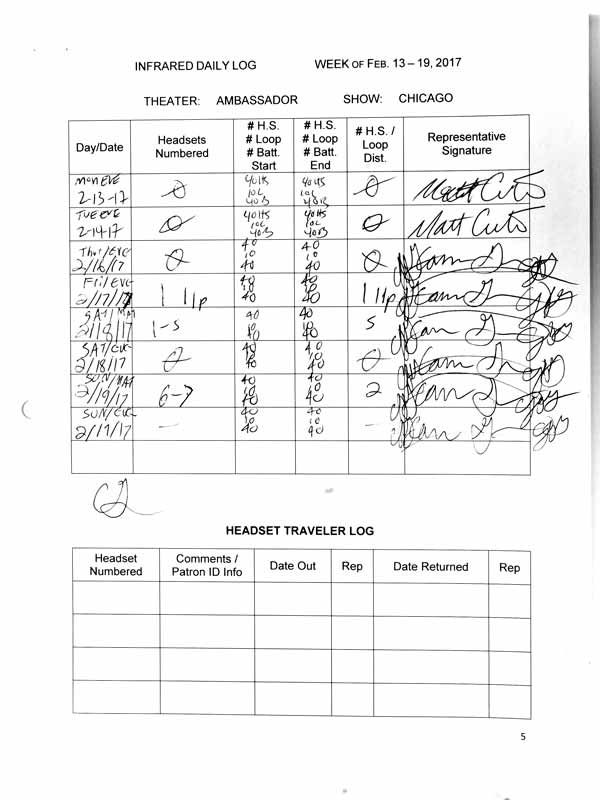 INFRARED DAILY LOG WEEK OF FEB. 13 – 19, 2017
THEATER: AMBASSADOR SHOW: CHICAGO
Day/Date Headsets Numbered # H.S. # Loop # Batt. Start # H.S. # Loop # Batt. End # H.S. / Loop Dist. Representative Signature
MON EVE 2-13-17 0 40HS 10L 40B 40HS 10L 40B 0 Matt Cuts
TUE EVE 2-14-17 0 40HS 10L 40B 40HS 10L 40B 0 Matt Cuts
Thur/EVE 2/16/17 0 40 10 40 40 10 40 0
Fri/EVE 2/17/17 1 1lp 40 10 40 40 10 40 1 1lp
SAT/MAT 2/18/17 1-5 40 10 40 40 10 40 5
SAT/EVE 2/18/17 0 40 10 40 40 10 40 0
SUN/MAT 2/19/17 6-7 40 10 40 40 10 40 2
SUN/EVE 2/19/17 — 40 10 40 40 10 40 —
HEADSET TRAVELER LOG
Headset Numbered Comments / Patron ID Info Date Out Rep Date Returned Rep
5